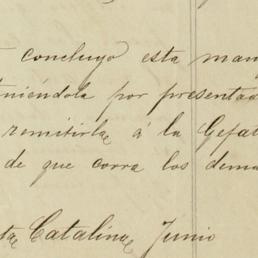 concluyo esta man
niéndola por presentad
remitirla á la Gefat
de que corra los dema
ta Catalina Junio